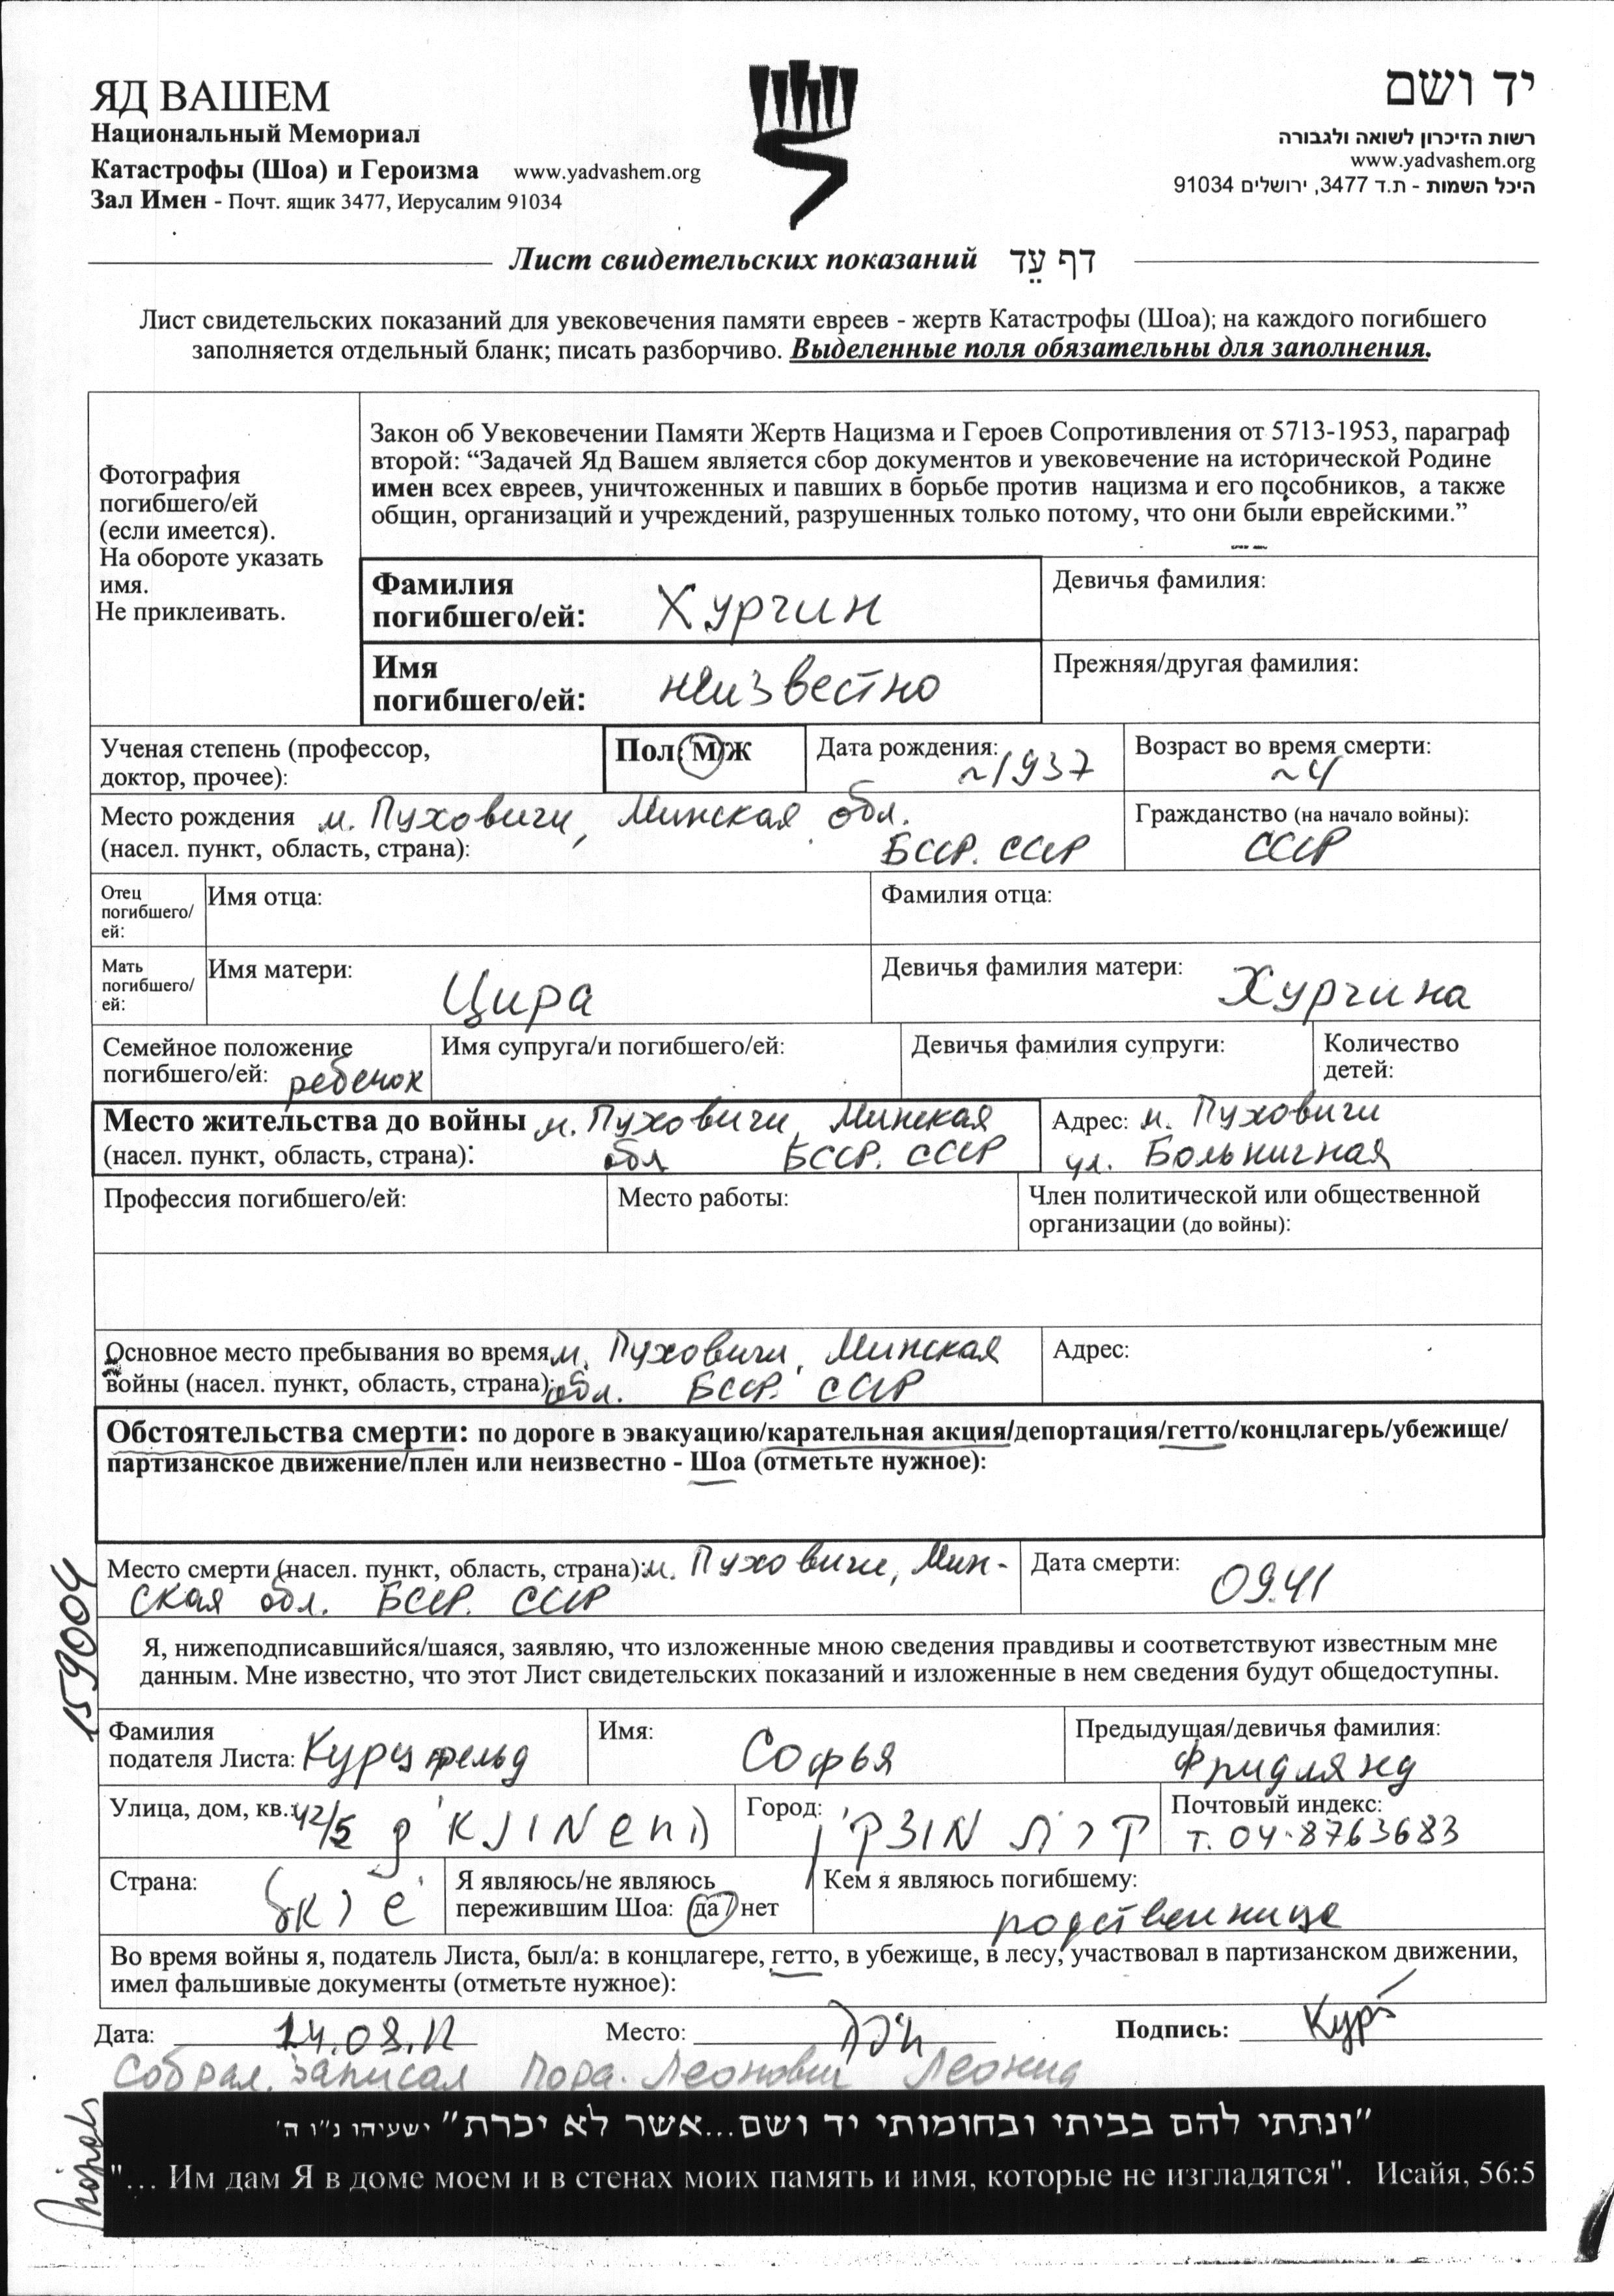 ЯД ВАШЕМ
Национальный Мемориал
Катастрофы (Шоа) и Героизма www.yadvashem.org
Зал Имен - Почт. ящик 3477, Иерусалим 91034
יד ושם
רשות הזיכרון לשואה ולגבורה
www.yadvashem.org
היכל השמות - ת.ד 3477, ירושלים 91034
Лист свидетельских показаний דף עֵד
Лист свидетельских показаний для увековечения памяти евреев - жертв Катастрофы (Шоа); на каждого погибшего
заполняется отдельный бланк; писать разборчиво. Выделенные поля обязательны для заполнения.
Фотография
погибшего/ей
(если имеется).
На обороте указать
имя.
Не приклеивать.
Закон об Увековечении Памяти Жертв Нацизма и Героев Сопротивления от 5713-1953, параграф
второй: “Задачей Яд Вашем является сбор документов и увековечение на исторической Родине
имен всех евреев, уничтоженных и павших в борьбе против нацизма и его пособников, а также
общин, организаций и учреждений, разрушенных только потому, что они были еврейскими.”
Фамилия
погибшего/ей: Хургин
Девичья фамилия:
Имя
погибшего/ей: неизвестно
Прежняя/другая фамилия:
Ученая степень (профессор,
доктор, прочее):
Пол: М/Ж
Дата рождения: ~1937
Возраст во время смерти: ~4
Место рождения м. Пуховичи, Минская обл.
(насел. пункт, область, страна): БССР. СССР
Гражданство (на начало войны): СССР
Отец
погибшего/
ей:
Имя отца:
Фамилия отца:
Мать
погибшего/
ей:
Имя матери: Цира
Девичья фамилия матери: Хургина
Семейное положение
погибшего/ей: ребенок
Имя супруга/и погибшего/ей:
Девичья фамилия супруги:
Количество
детей:
Место жительства до войны м. Пуховичи, Минская
(насел. пункт, область, страна): обл БССР. СССР
Адрес: м. Пуховичи
ул. Больничная
Профессия погибшего/ей:
Место работы:
Член политической или общественной
организации (до войны):
Основное место пребывания во время м. Пуховичи, Минская
войны (насел. пункт, область, страна): обл. БССР. СССР
Адрес:
Обстоятельства смерти: по дороге в эвакуацию/карательная акция/депортация/гетто/концлагерь/убежище/
партизанское движение/плен или неизвестно - Шоа (отметьте нужное):
Место смерти (насел. пункт, область, страна): м. Пуховичи, Мин-
ская обл. БССР. СССР
Дата смерти: 09.41
159004
Я, нижеподписавшийся/шаяся, заявляю, что изложенные мною сведения правдивы и соответствуют известным мне
данным. Мне известно, что этот Лист свидетельских показаний и изложенные в нем сведения будут общедоступны.
Фамилия
подателя Листа: Курцфельд
Имя: Софья
Предыдущая/девичья фамилия:
Фридлянд
Улица, дом, кв.: 42/5
Город: קרית מוצקין
Почтовый индекс:
т. 04-8763683
Страна: ישראל
Я являюсь/не являюсь
пережившим Шоа: да/нет
Кем я являюсь погибшему:
родственница
Во время войны я, податель Листа, был/а: в концлагере, гетто, в убежище, в лесу, участвовал в партизанском движении,
имел фальшивые документы (отметьте нужное):
Дата: 14.03.12 Место: חיפה Подпись: Кур
Собрал. записал Пора. Леонович Леонид
"ונתתי להם בביתי ובחומותי יד ושם...אשר לא יכרת" ישעיהו נ"ו ה'
"... Им дам Я в доме моем и в стенах моих память и имя, которые не изгладятся". Исайя, 56:5